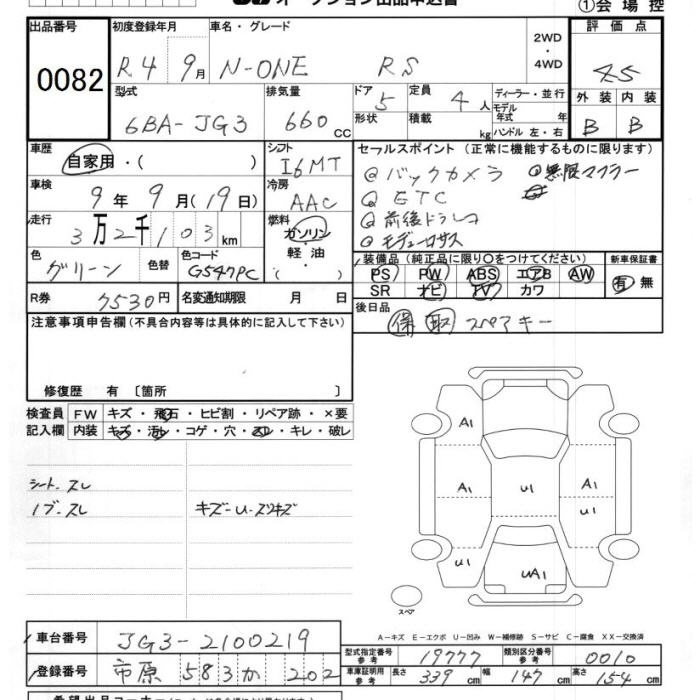 オークション出品申込書
①会場控
出品番号 初度登録年月 車名・グレード 評価点
0082 R4 9月 N-ONE RS 2WD・4WD 4.5
型式 排気量 ドア 定員 ディーラー・並行 外装 内装
6BA-JG3 660cc 5 4人 モデル年式 年 B B
形状 積載 kg ハンドル 左・右
車歴 シフト セールスポイント（正常に機能するものに限ります）
自家用・( ) I6MT バックカメラ 無限マフラー
車検 冷房 ETC
9年9月(19日) AAC 前後ドラレコ
走行 燃料 モデューロサス
3万2千103km ガソリン・軽油・( )
色 色替 色コード 装備品（純正品に限り○をつけてください） 新車保証書
グリーン G547PC PS PW ABS エアB AW 有・無
SR ナビ TV カワ
R券 7530円 名変通知期限 月 日 後日品
注意事項申告欄（不具合内容等は具体的に記入して下さい） 保 取 スペアキー
修復歴 有 〔箇所 〕
検査員 FW キズ・飛石・ヒビ割・リペア跡・×要
記入欄 内装 キズ・汚レ・コゲ・穴・スレ・キレ・破レ
シートスレ
ノブスレ キズ-U-スリキズ
A1
A1 U1 A1
U1
U1
UA1
スペア
A－キズ E－エクボ U－凹み W－補修跡 S－サビ C－腐食 XX－交換済
車台番号 JG3-2100219
型式指定番号 参考 19777 類別区分番号 参考 0010
登録番号 市原 583 か 202
車庫証明用 参考 長さ 339cm 幅 147cm 高さ 154cm